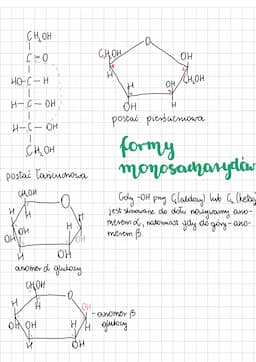 CH₂OH
C=O
HO-C-H
H-C-OH
H-C-OH
CH₂OH
postać łańcuchowa
O
CH₂OH
OH
H
CH₂OH
OH
H
postać pierścieniowa
formy
monosacharydów
Gdy -OH przy C₁(aldozy) lub C₂ (ketozy)
jest skierowane do dołu nazywamy ano-
merem α, natomiast gdy do góry - ano-
merem β
CH₂OH
O
H
H
OH
OH
H
OH
anomer α glukozy
CH₂OH
O
OH
H
H
OH
OH
H
H
OH
-anomer β
glukozy